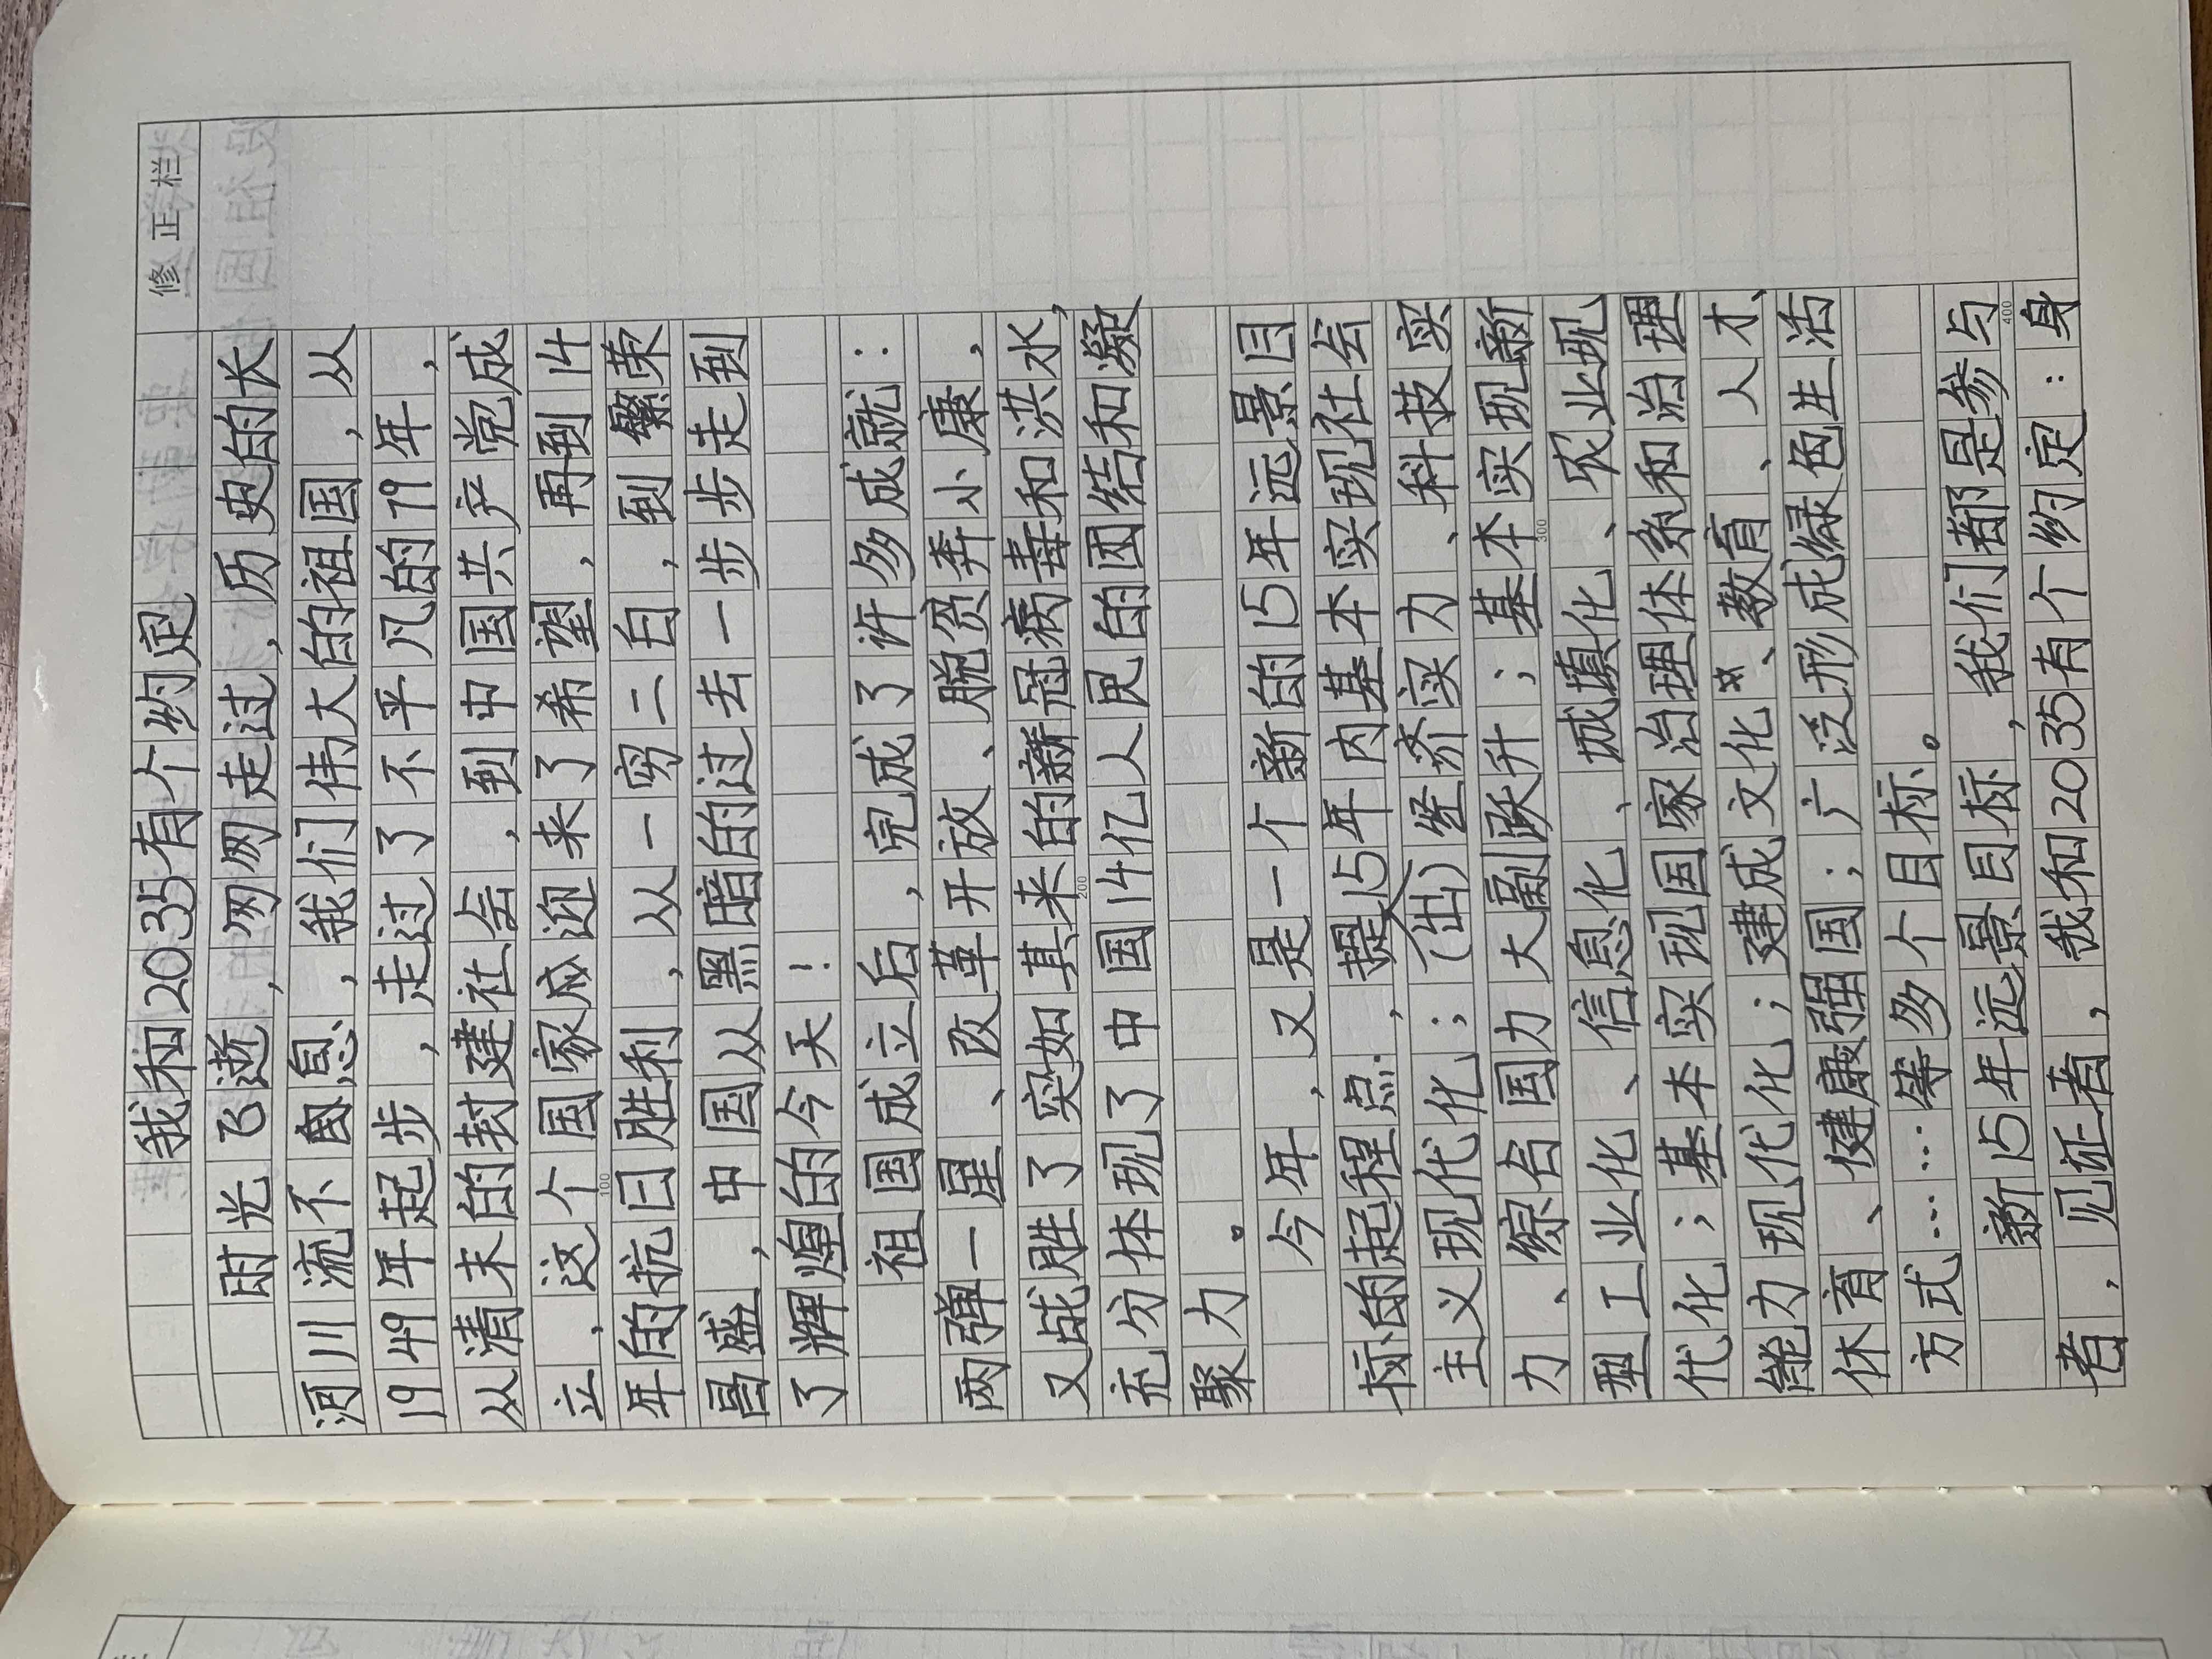 修正栏
我和2035有个约定
时光飞逝，匆匆走过，历史的长
河川流不息，我们伟大的祖国，从
1949年起步，走过了不平凡的79年，
从清末的封建社会，到中国共产党成
立，这个国家成迎来了希望，再到14
100
年的抗日胜利，从一穷二白，到繁荣
昌盛，中国从黑暗的过去一步步走到
了辉煌的今天！
祖国成立后，完成了许多成就：
两弹一星、改革开放、脱贫奔小康，
又战胜了突如其来的新冠病毒和洪水，
200
充分体现了中国14亿人民的团结和凝
聚力。
今年，又是一个新的15年远景目
标的起程点，提15年内基本实现社会
主义现代化；（出）经济实力、科技实
力、综合国力大副跃升；基本实现新
300
型工业化、信息化、城填化、农业现
代化；基本实现国家治理体系和治理
能力现代化；建成文化、教育、人才、
体育、健康强国；广泛形成绿色生活
方式……等多个目标。
新15年远景目标，我们都是参与
400
者，见证者，我和2035有个约定：身